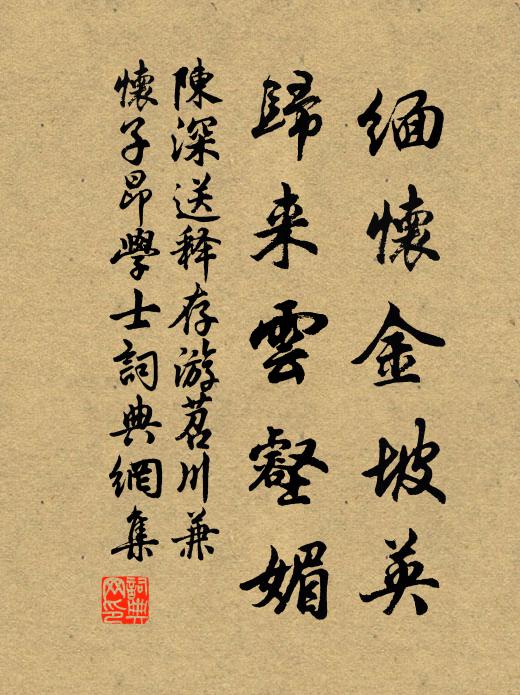 缅懷金坡英
歸来雲壑媚
陳深送释存游苕川兼
懷子昂學士詞典網集
詞典网印